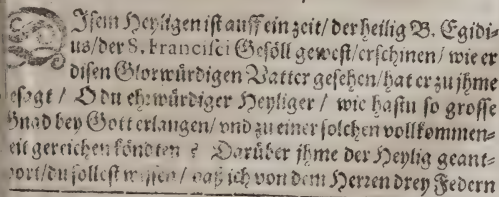 DIsem Heyligen ist auff ein zeit/ der heilig B. Egidi-
us/ der S. Francisci Gesöll gewest/ erschinen/ wie er
disen Glorwürdigen Vatter gesehen/ hat er zu jhme
esagt / O du ehrwürdiger Heyliger / wie hastu so grosse
Gnad bey Gott erlangen/ vnd zu einer solchen vollkommen-
eit gereichen köndten ? Darüber jhme der Heylig geant-
wort/ du sollest wissen/ daß ich von dem Herren drey Federn